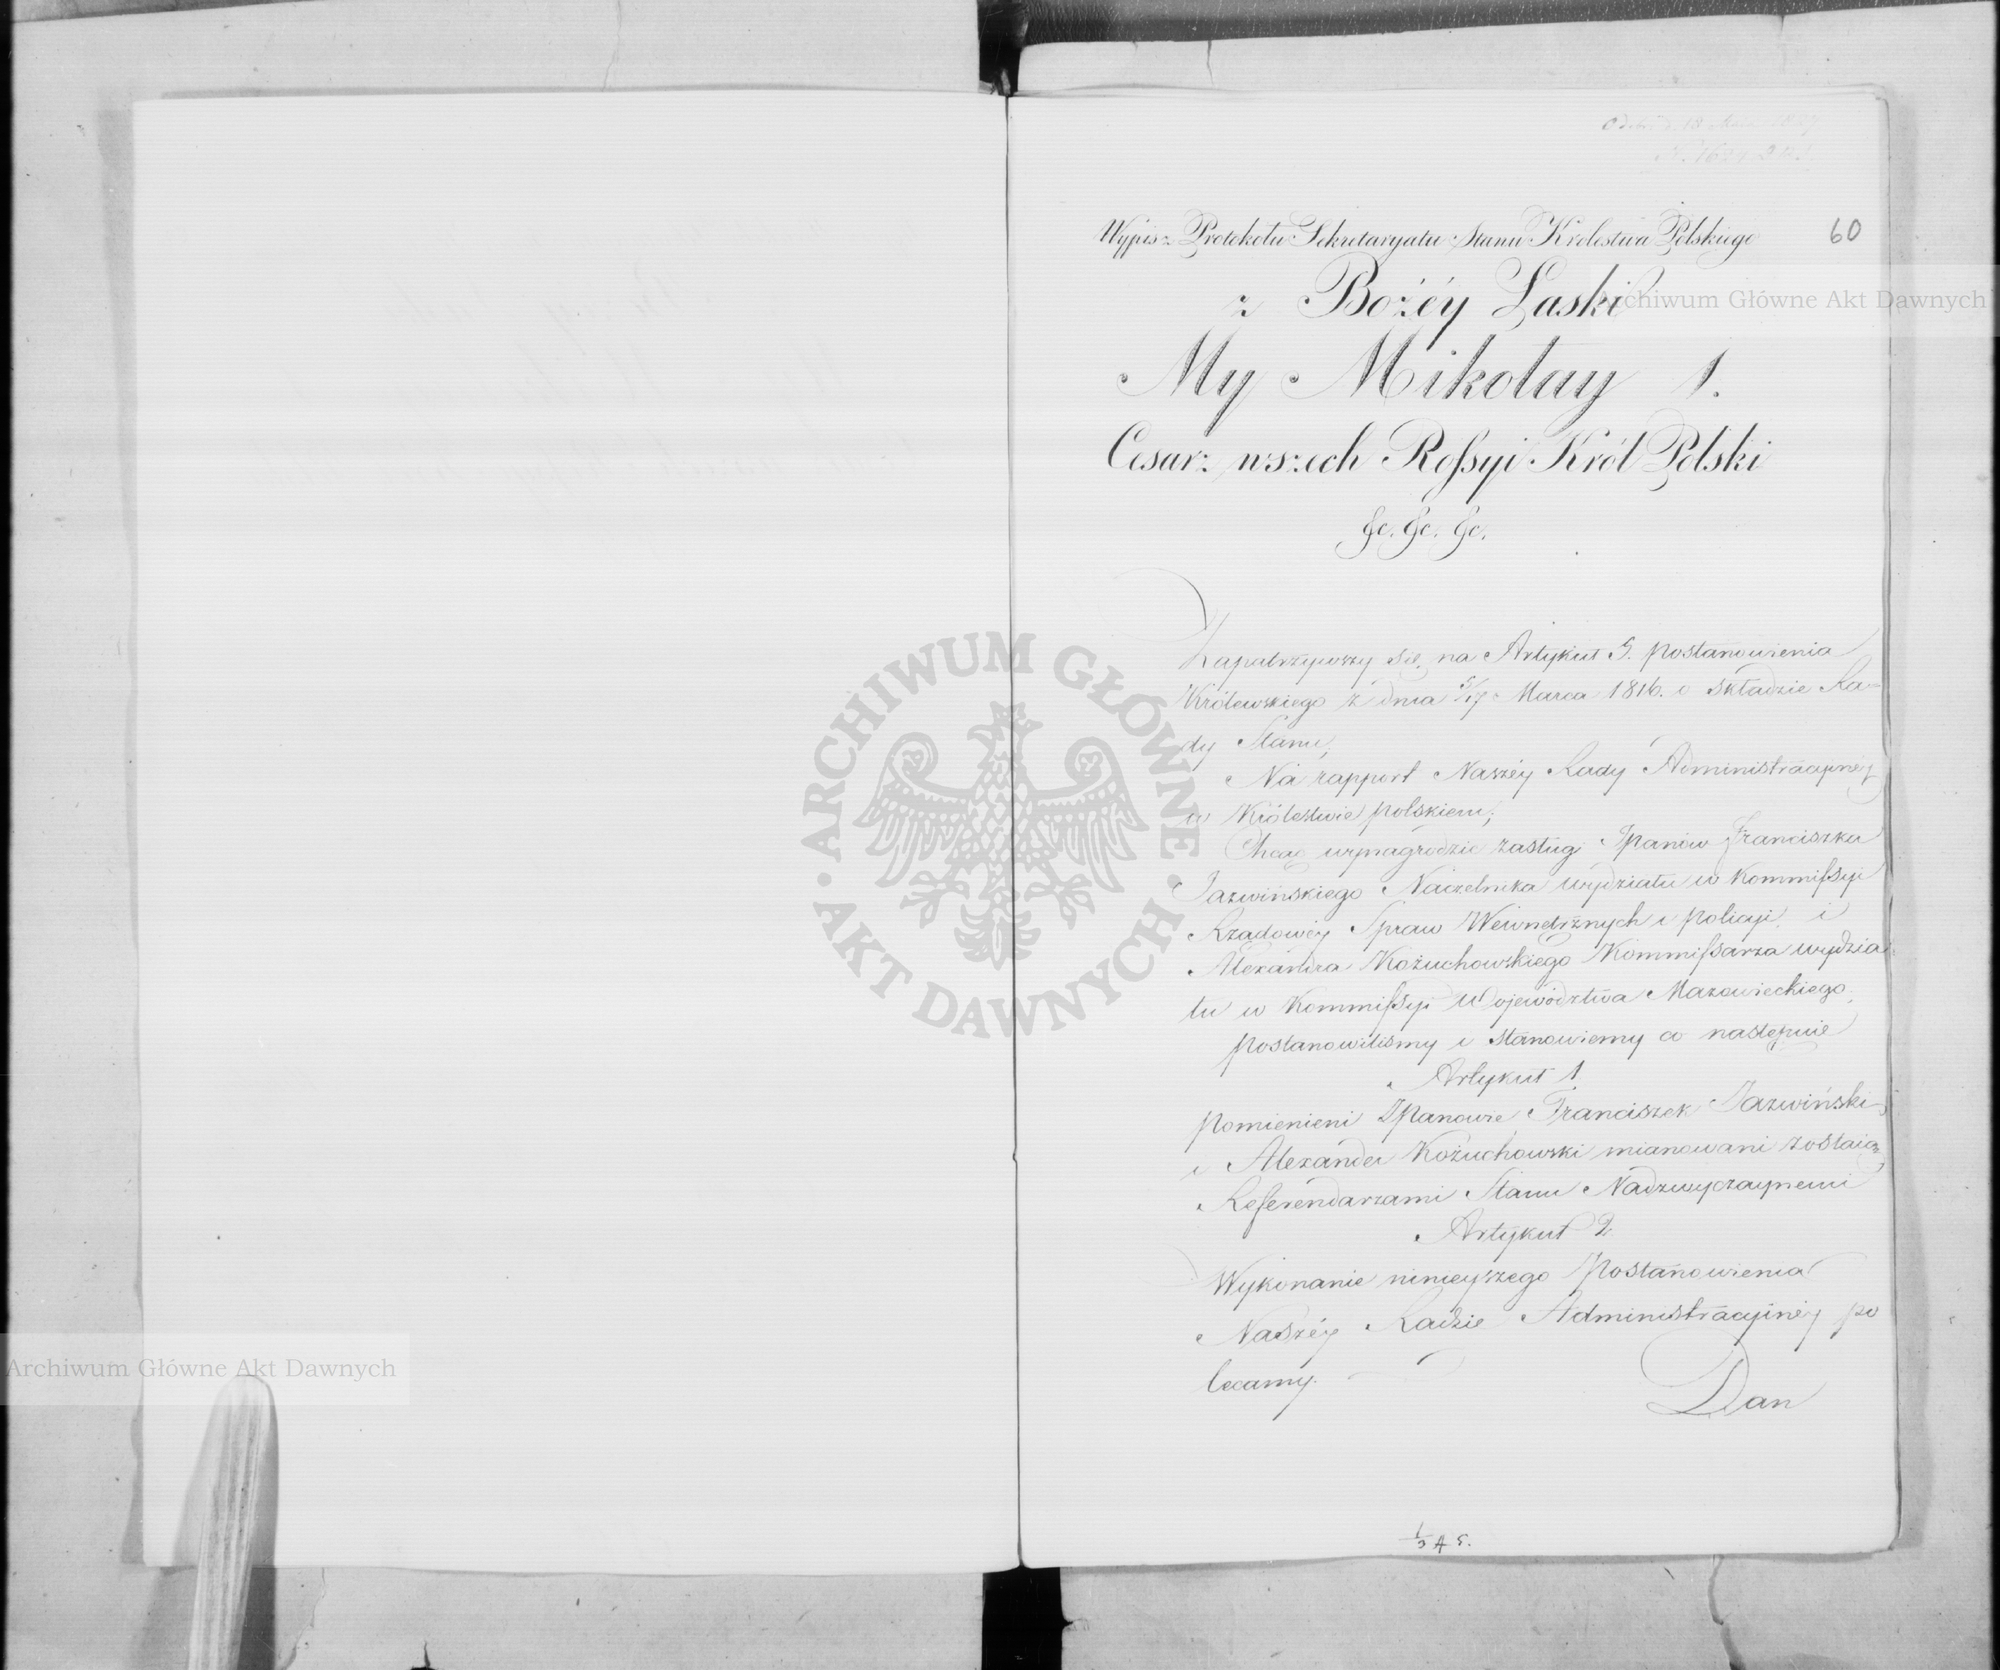 Odebr. d. 18 Maia 1829
60
Wypis z Protokołu Sekretaryatu Stanu Królestwa Polskiego
z Bożéy Łaski
My Mikołay 1.
Cesarz wszech Rossyi Król Polski
&c. &c. &c.
Zapatrzywszy się na Artykuł 5. postanowienia
Królewskiego z dnia 5/17 Marca 1816. o składzie Ra-
dy Stanu,
Na rapport Naszéy Rady Administracyinéy
w Królestwie polskiem;
Chcąc wynagrodzić zasługi JPanów Franciszka
Jazwińskiego Naczelnika wydziału w Kommissyi
Rządowéy Spraw Wewnętrznych i policyi, i
Alexandra Kożuchowskiego Kommissarza wydzia-
łu w Kommissyi Województwa Mazowieckiego
postanowiliśmy i stanowiemy co następuie
Artykuł 1
pomienieni JPanowie Franciszek Jazwiński
i Alexander Kożuchowski mianowani zostaią
Referendarzami Stanu Nadzwyczaynemi
Artykuł 2
Wykonanie ninieyszego Postanowienia
Naszéy Radzie Administracyinéy po
lecamy.
Dan
Archiwum Główne Akt Dawnych
ARCHIWUM GŁÓWNE · AKT DAWNYCH ·
Archiwum Główne Akt Dawnych